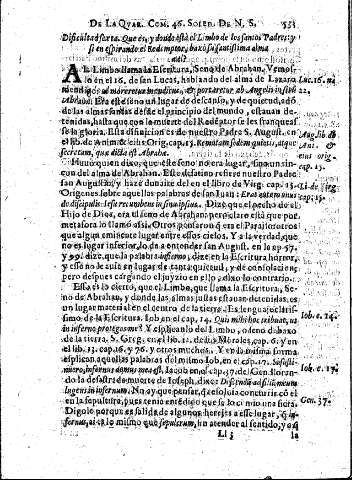 DE LA QVAR. COM. 46. SOLEN. DE N. S. 531
Dificultad sexta. Que es, y donde está el Limbo de los santos Padres: y
si en espirando el Redemptor, baxó su santissima alma
AL Limbo llama la Escritura, Seno de Abrahan. Vemoslo
en el 16. de san Lucas, hablando del alma de Lazaro Luc. 16. nu.
mendigo: vt moreretur mendicus, & portaretur ab Angelis in sinũ 22.
Abrahæ. Era este sino vn lugar de descanso, y de quietud, adõ
de las almas santas desde el principio del mundo, estauan de-
tenidas, hasta que con la muerte del Redẽptor se les franqueas-
se la gloria. Esta difinicion es de nuestro Padre S. August. en Aug. lib. de
el lib. de Anima & eius Orig. cap. 15. Remotam sedem quietis, atque Ani. &
secretam, quæ dicta est Abrahæ. eius orig.
Huuo quien dixo, que este seno no era lugar, sino un rin- cap. 15.
con del alma de Abrahan. Este desatino refiere nuestro Padre
san Augustin, y haze donaire del en el libro de
Origenes sobre aquellas palabras de san Iuan: Erat autem vnus
de discipulis Iesu recumbens in sinu ipsius. Dize, que el pecho del
Hijo de Dios, era el seno de Abrahan: pero claro está que por
metafora lo llamó assi. Otros pensaron q̃ era el Parayso, otros
que algun eminente lugar entre essos cielos. Y a la verdad, que
no es lugar inferior, lo da a entender san August. en la ep. 57.
y 99. dize, que la palabra infierno, dize en la Escritura horror,
y esso no es aula en lugar de tanta quietud, y de consolacion:
pero despues cargando el juyzio en ello dixo lo contrario.
Esso es lo cierto, que el Limbo, que llama la Escritura, Se-
no de Abrahan, y donde las almas justas estauan detenidas, es
vn lugar material en el centro de la tierra. Es lenguaje clarís-
simo de la Escritura. Iob en el cap. 14. Quis mihi hoc tribuat, vt Iob. c. 14.
in inferno protegas me? Y esplicanlo del Limbo, o seno debaxo
de la tierra, S. Greg. en el lib. 12. de los Morales, cap. 6. y en
el lib. 13. cap. 16. y 76. y otros muchos. Y en la misma forma
esplican aquellas palabras del mismo Iob, en el cap. 17. Si susti-
nuero, infernus domus mea est. Iacob en el cap. 37. del Gen. lloran- Iob. c. 17.
do la desastrada muerte de Ioseph, dize: Descendã ad filiũ meum
lugens in infernum. No ay que pensar, q̃ esso lo ia concurrir con el
en la sepultura, pues tenia entẽdido que se lo comio vna fiera. Gen. 37.
Digolo porque es salida de algunos herejes a esse lugar, q̃ in-
fernus, ai es lo mismo que sepulcrum, sin atender al sentido, y a q̃
Ll 3 la